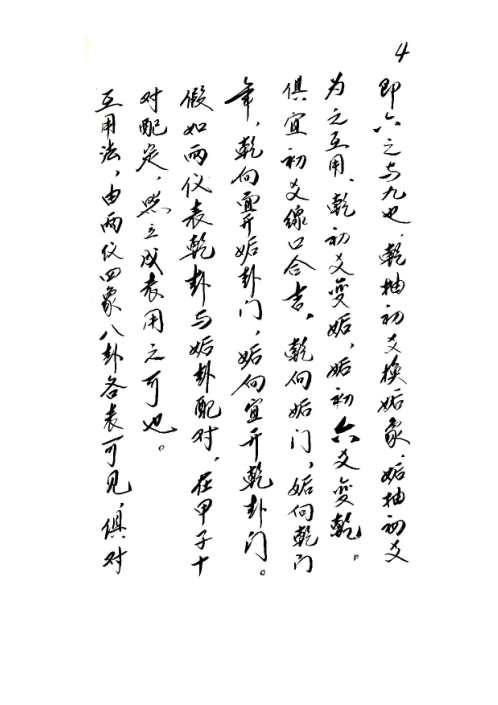 4
互用法，由两仪四象八卦各表可见，俱对
对配定，照立成表用之可也。
假如两仪表乾卦与姤卦配对，在甲子十
年，乾向宜开姤卦门，姤向宜开乾卦门。
俱宜初爻線口合吉，乾向姤门，姤向乾门
为之互用，乾初爻变姤，姤初六爻变乾。
即六之与九也，乾抽初爻换姤象，姤抽初爻